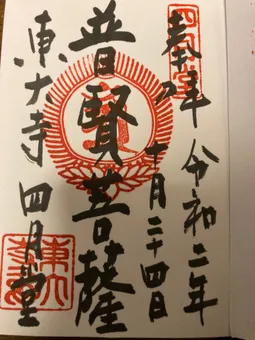 奉拜
令和二年
十月二十四日
普賢菩薩
東大寺 四月堂